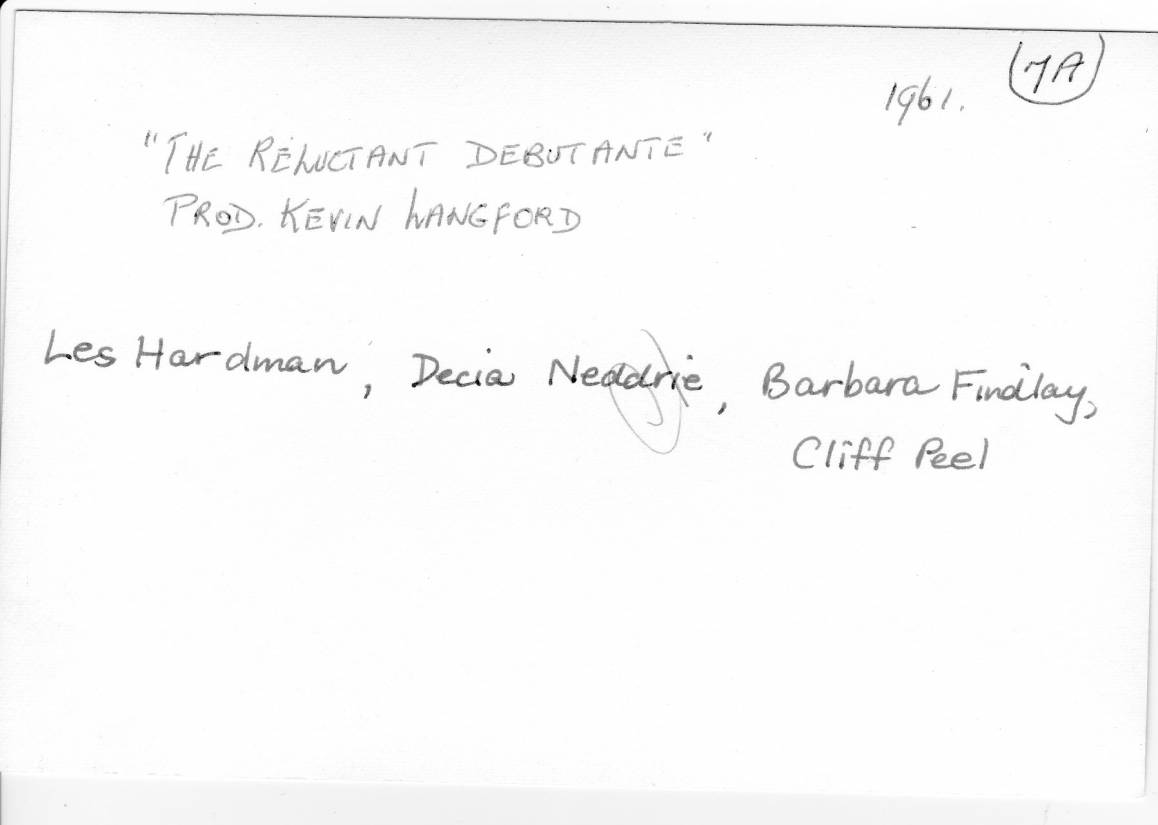 1961. 7A
"THE RELUCTANT DEBUTANTE"
PROD. KEVIN LANGFORD
Les Hardman, Decia Neddrie, Barbara Findlay,
Cliff Peel